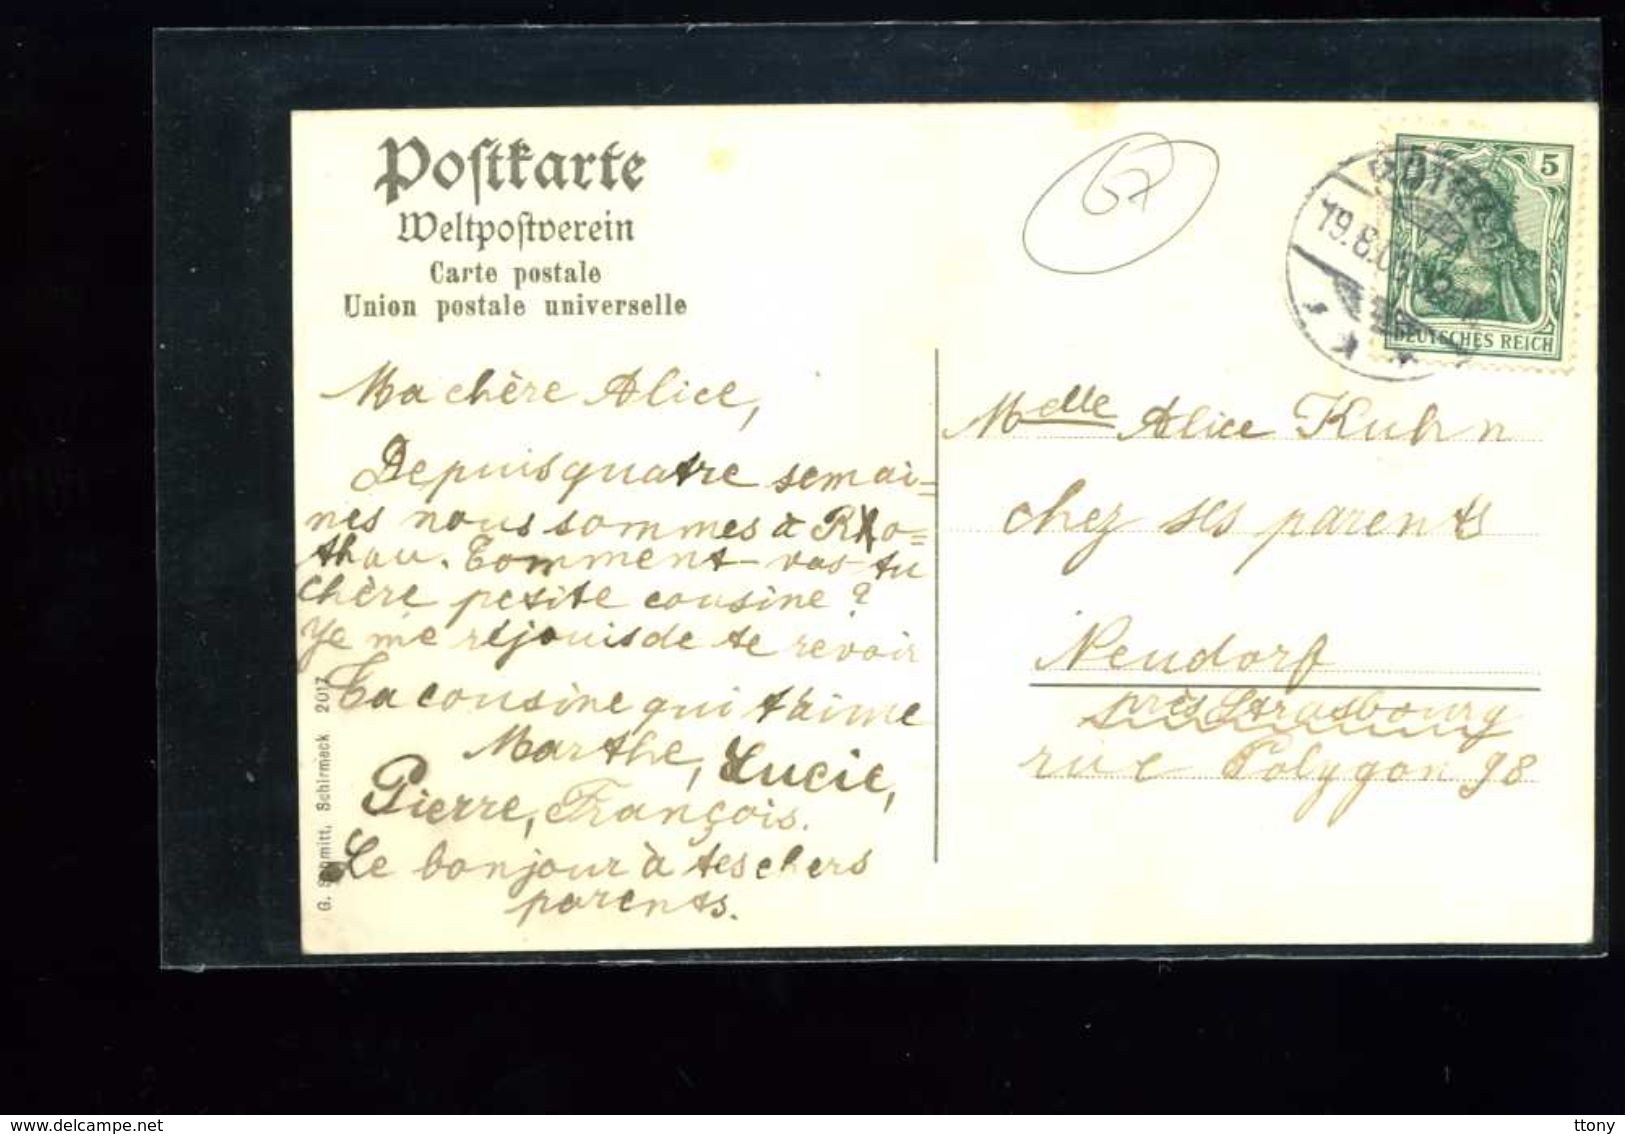 Postkarte
Weltpostverein
Carte postale
Union postale universelle
Ma chère Alice,
Depuis quatre semai=
nes nous sommes à Rho=
thau. Comment vas-tu
chère petite cousine ?
Je me réjouis de te revoir
Ta cousine qui t'aime
Marthe, Lucie,
Pierre, François.
Le bonjour à tes chers
parents.
G. Schmitt, Schirmeck 2017
57
5 5
DEUTSCHES REICH
19.8.05
Melle Alice Kuhn
chez ses parents
Neudorf
près Strasbourg
rue Polygon 98
www.delcampe.net
ttony